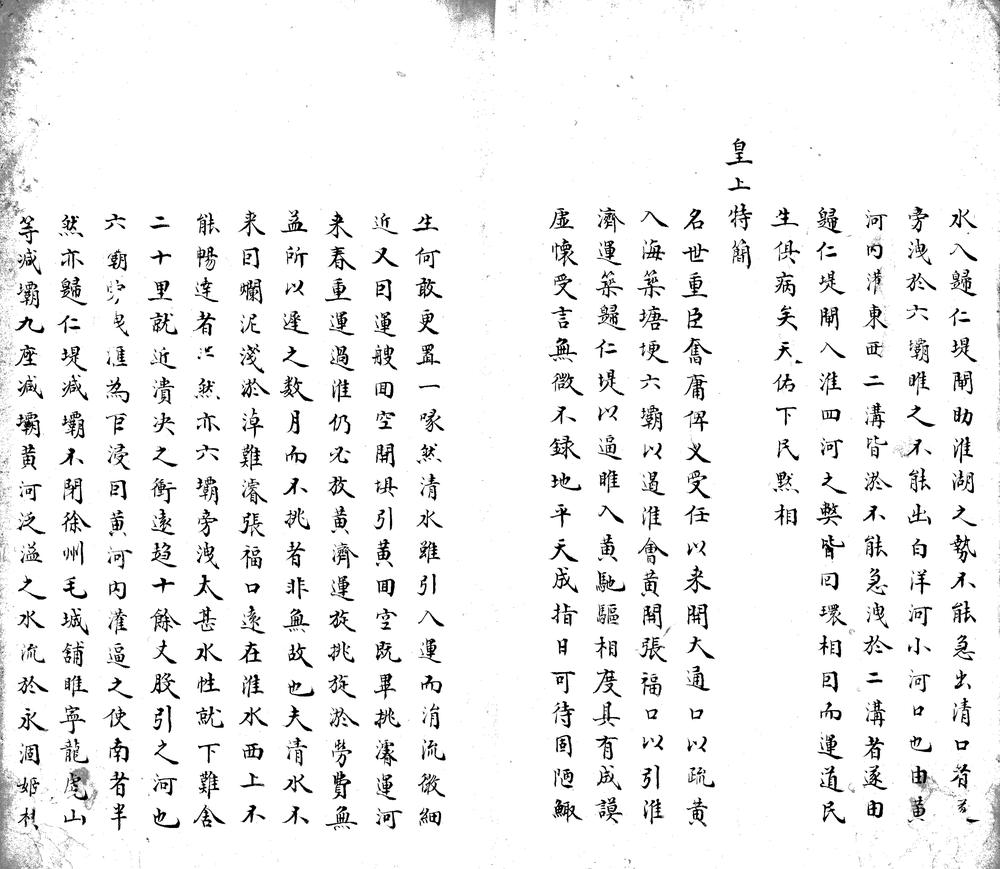 水入歸仁堤閘助淮湖之勢不能急出清口者
旁洩於六壩睢之不能出白洋河小河口也由黃
河内灌東西二溝皆淤不能急洩於二溝者遂由
歸仁堤閘入淮四河之弊皆回環相因而運道民
生俱病矣天佑下民黙相
皇上特簡
名世重臣奮庸俾乂受任以来開大通口以疏黃
入海築塘埂六壩以遏淮會黃開張福口以引淮
濟運築歸仁堤以逼睢入黃馳驅相度具有成謨
虛懷受言無微不録地平天成指日可待固陋鯫
生何敢更置一喙然清水雖引入運而涓流微細
近又因運艘回空開垻引黃回空既畢挑濬運河
来春重運過淮仍必放黃濟運旋挑旋淤勞費無
益所以遲之数月而不挑者非無故也夫清水不
来因爛泥淺淤於淖難濬張福口遠在淮水西上不
能暢達者 然亦六壩旁洩太甚水性就下難舍
二十里就近潰决之衝遠趋十餘丈股引之河也
六壩 洩淮為巨浸因黃河内灌逼之使南者半
然亦歸仁堤减壩不閉徐州毛城舖睢寧龍虎山
等减壩九座减壩黃河泛溢之水流於永涸姬村